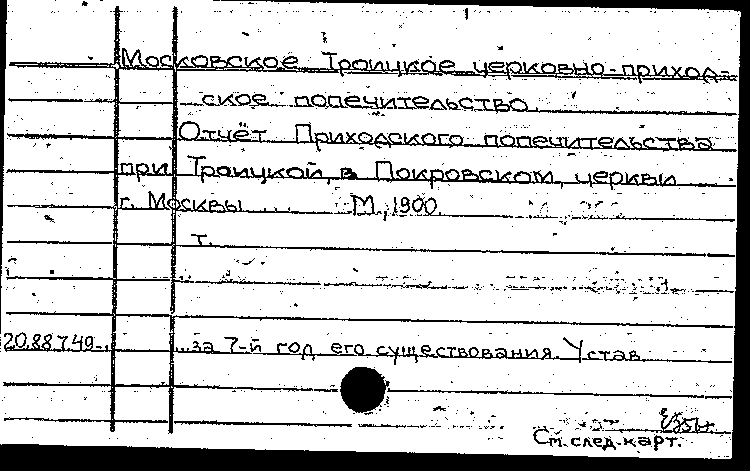 Московское Троицкое церковно-приход-
ское попечительство.
Отчёт Приходского попечительства
при Троицкой, в Покровском, церкви
г. Москвы ... М., 1900.
т.
20.88 7.49-. ...за 7-й год его существования. Устав.
См. след. карт.